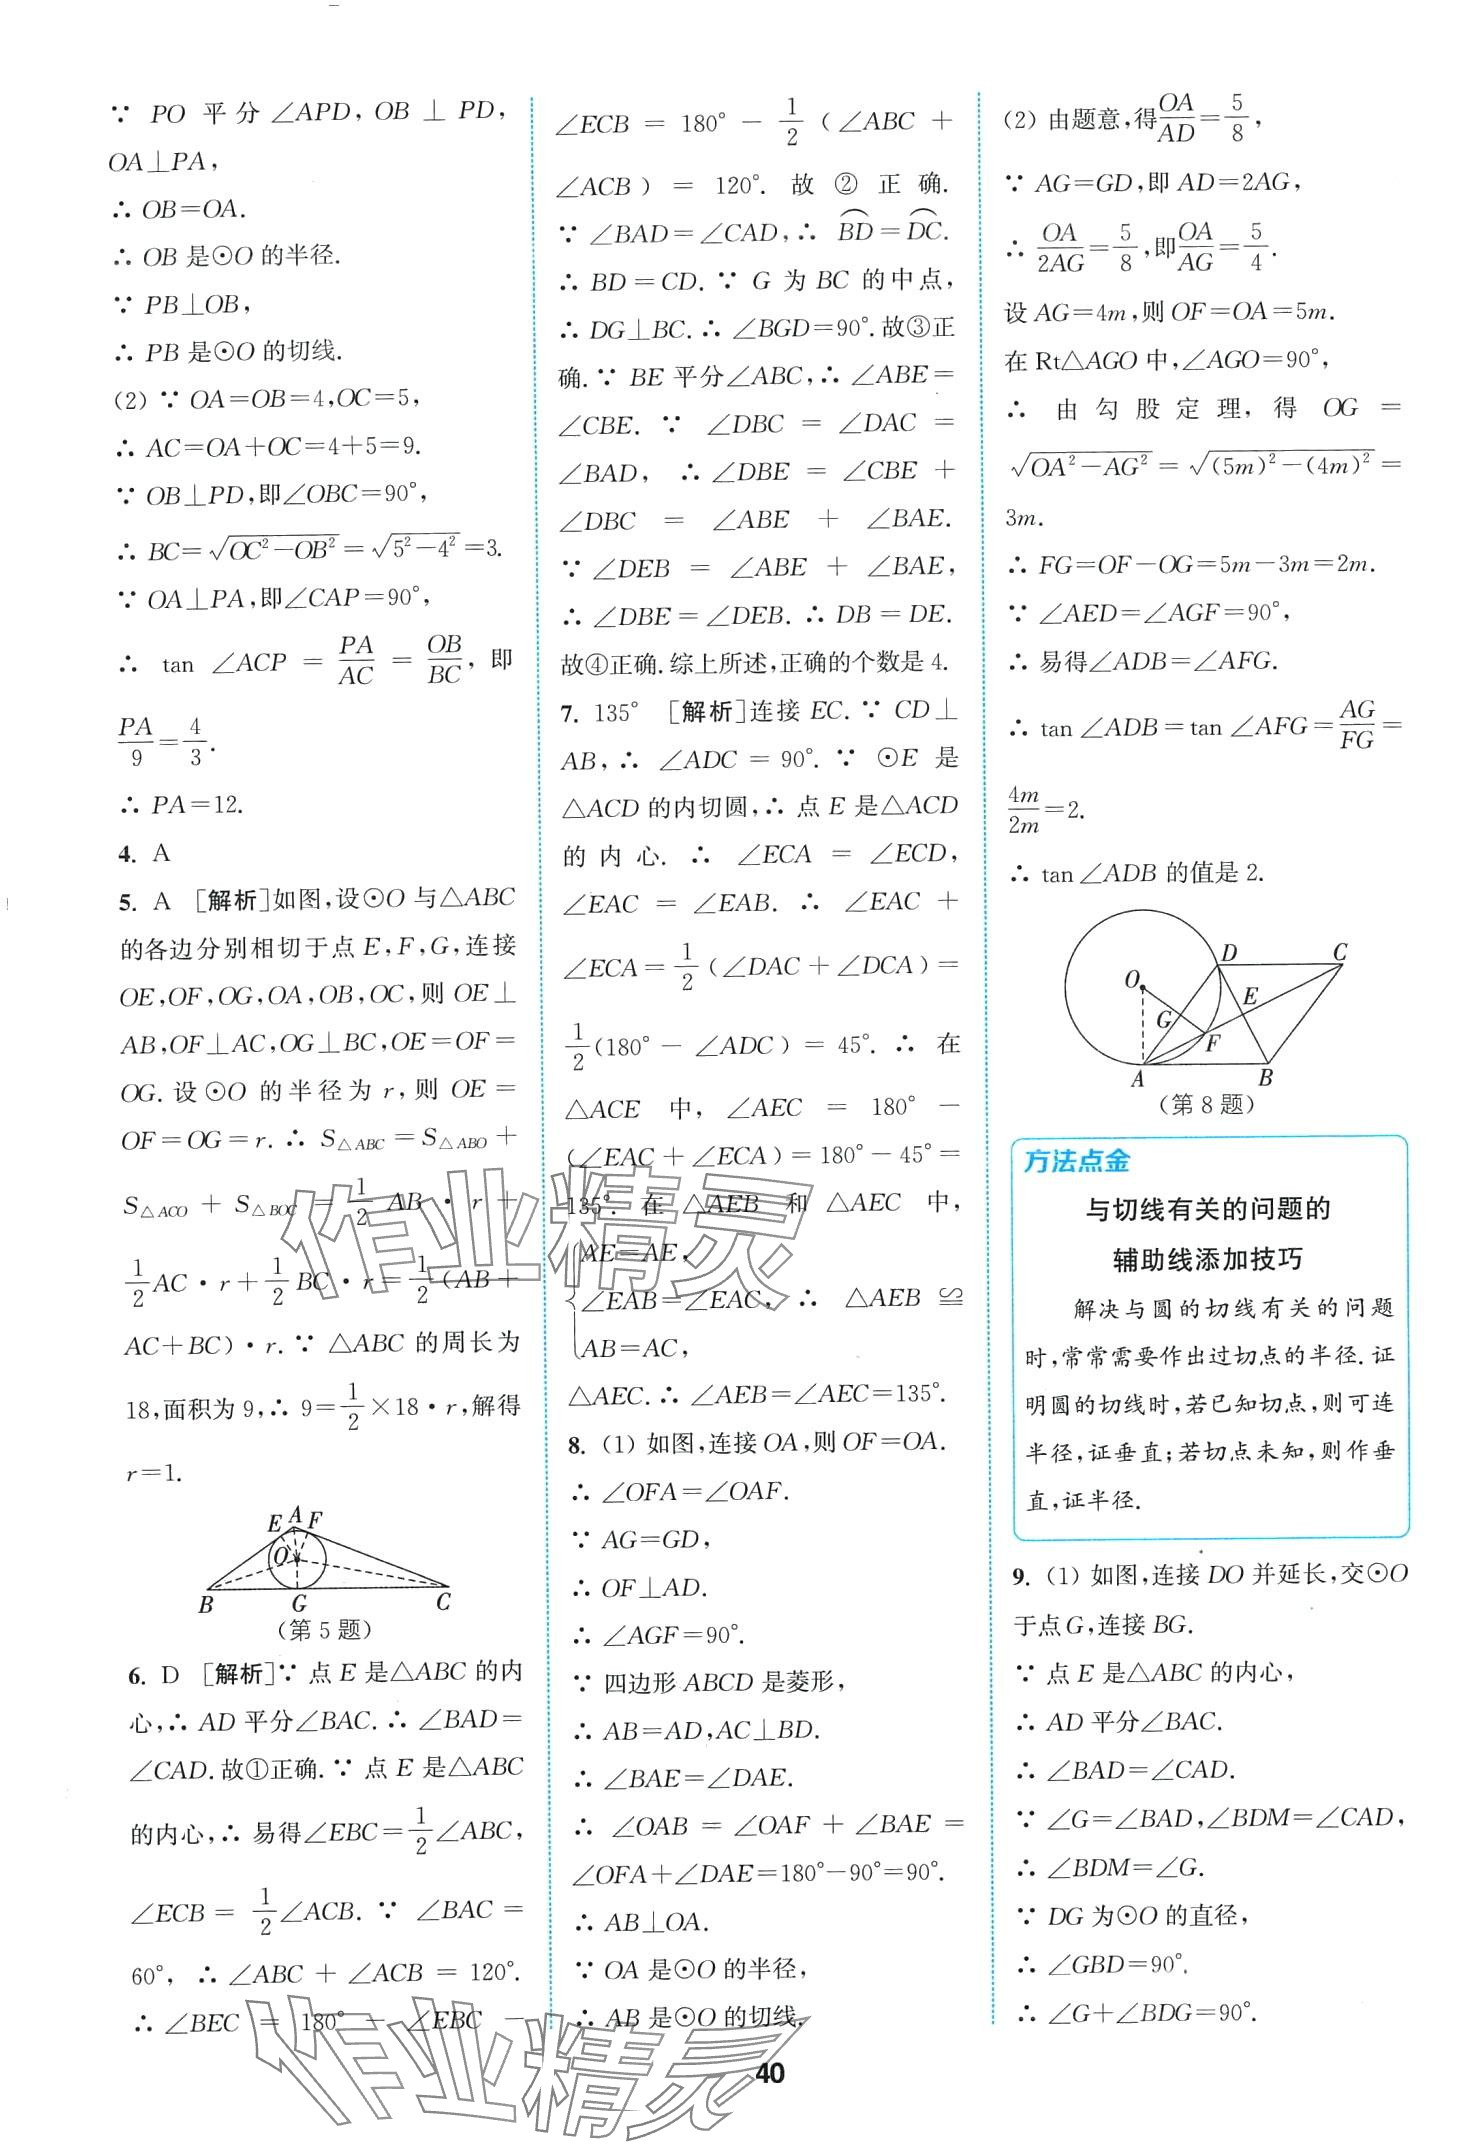 ∵ PO 平分∠APD, OB⊥PD,
OA⊥PA,
∴ OB=OA.
∴ OB 是⊙O 的半径.
∵ PB⊥OB,
∴ PB 是⊙O 的切线.
(2) ∵ OA=OB=4,OC=5,
∴ AC=OA+OC=4+5=9.
∵ OB⊥PD,即∠OBC=90°,
∴ BC=√(OC²-OB²)=√(5²-4²)=3.
∵ OA⊥PA,即∠CAP=90°,
∴ tan ∠ACP = PA/AC = OB/BC, 即
PA/9=4/3.
∴ PA=12.
4. A
5. A [解析]如图,设⊙O 与△ABC
的各边分别相切于点 E,F,G,连接
OE,OF,OG,OA,OB,OC,则 OE⊥
AB,OF⊥AC,OG⊥BC,OE=OF=
OG. 设⊙O 的半径为 r,则 OE=
OF=OG=r. ∴ S△ABC=S△ABO+
S△ACO + S△BOC = 1/2 AB·r+
1/2 AC·r+1/2 BC·r=1/2(AB+
AC+BC)·r. ∵ △ABC 的周长为
18,面积为 9,∴ 9=1/2×18·r,解得
r=1.
E A F
O
B G C
(第 5 题)
6. D [解析]∵ 点 E 是△ABC 的内
心,∴ AD 平分∠BAC. ∴ ∠BAD=
∠CAD. 故①正确. ∵ 点 E 是△ABC
的内心,∴ 易得∠EBC=1/2∠ABC,
∠ECB = 1/2∠ACB. ∵ ∠BAC =
60°, ∴ ∠ABC + ∠ACB = 120°.
∴ ∠BEC = 180° - ∠EBC -
∠ECB = 180° - 1/2(∠ABC +
∠ACB) = 120°. 故 ② 正确.
∵ ∠BAD=∠CAD,∴ ⌒BD=⌒DC.
∴ BD=CD. ∵ G 为 BC 的中点,
∴ DG⊥BC. ∴ ∠BGD=90°. 故③正
确. ∵ BE 平分∠ABC,∴ ∠ABE=
∠CBE. ∵ ∠DBC = ∠DAC =
∠BAD, ∴ ∠DBE = ∠CBE +
∠DBC = ∠ABE + ∠BAE.
∵ ∠DEB = ∠ABE + ∠BAE,
∴ ∠DBE=∠DEB. ∴ DB=DE.
故④正确. 综上所述,正确的个数是 4.
7. 135° [解析]连接 EC. ∵ CD⊥
AB,∴ ∠ADC = 90°. ∵ ⊙E 是
△ACD 的内切圆,∴ 点 E 是△ACD
的内心. ∴ ∠ECA = ∠ECD,
∠EAC = ∠EAB. ∴ ∠EAC +
∠ECA=1/2(∠DAC+∠DCA)=
1/2(180° - ∠ADC) = 45°. ∴ 在
△ACE 中, ∠AEC = 180° -
(∠EAC+∠ECA)=180°-45°=
135°. 在 △AEB 和 △AEC 中,
AE=AE,
{∠EAB=∠EAC, ∴ △AEB ≌
AB=AC,
△AEC. ∴ ∠AEB=∠AEC=135°.
8. (1) 如图,连接 OA,则 OF=OA.
∴ ∠OFA=∠OAF.
∵ AG=GD,
∴ OF⊥AD.
∴ ∠AGF=90°.
∵ 四边形 ABCD 是菱形,
∴ AB=AD,AC⊥BD.
∴ ∠BAE=∠DAE.
∴ ∠OAB = ∠OAF + ∠BAE =
∠OFA+∠DAE=180°-90°=90°.
∴ AB⊥OA.
∵ OA 是⊙O 的半径,
∴ AB 是⊙O 的切线.
(2) 由题意,得OA/AD=5/8,
∵ AG=GD,即 AD=2AG,
∴ OA/2AG=5/8,即OA/AG=5/4.
设 AG=4m,则 OF=OA=5m.
在 Rt△AGO 中,∠AGO=90°,
∴ 由勾股定理,得 OG =
√(OA²-AG²)=√((5m)²-(4m)²)=
3m.
∴ FG=OF-OG=5m-3m=2m.
∵ ∠AED=∠AGF=90°,
∴ 易得∠ADB=∠AFG.
∴ tan ∠ADB=tan ∠AFG=AG/FG=
4m/2m=2.
∴ tan ∠ADB 的值是 2.
D C
O
G E
F
A B
(第 8 题)
方法点金
与切线有关的问题的
辅助线添加技巧
解决与圆的切线有关的问题
时,常常需要作出过切点的半径. 证
明圆的切线时,若已知切点,则可连
半径,证垂直;若切点未知,则作垂
直,证半径.
9. (1) 如图,连接 DO 并延长,交⊙O
于点 G,连接 BG.
∵ 点 E 是△ABC 的内心,
∴ AD 平分∠BAC.
∴ ∠BAD=∠CAD.
∵ ∠G=∠BAD,∠BDM=∠CAD,
∴ ∠BDM=∠G.
∵ DG 为⊙O 的直径,
∴ ∠GBD=90°.
∴ ∠G+∠BDG=90°.
40
作业精灵
作业精灵